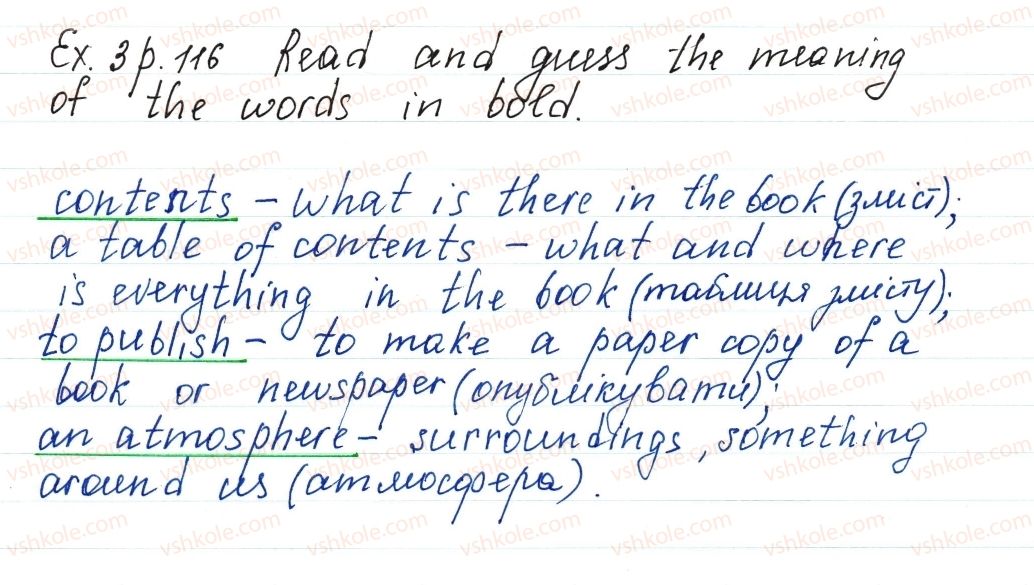 Ex. 3 p. 116 Read and guess the meaning
of the words in bold.
contents – what is there in the book (зміст);
a table of contents – what and where
is everything in the book (таблиця змісту);
to publish – to make a paper copy of a
book or newspaper (опублікувати);
an atmosphere – surroundings, something
around us (атмосфера).